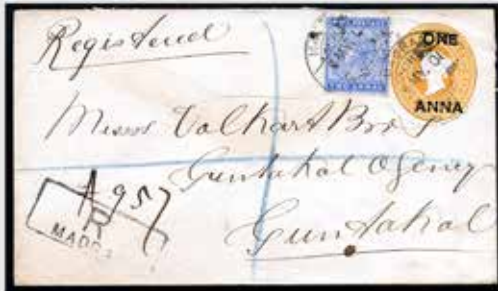 Registered
TWO ANNAS
ONE
ANNA
Messrs Volkart Bros
Guntakal Agency
Guntakal
R
957
MADRAS